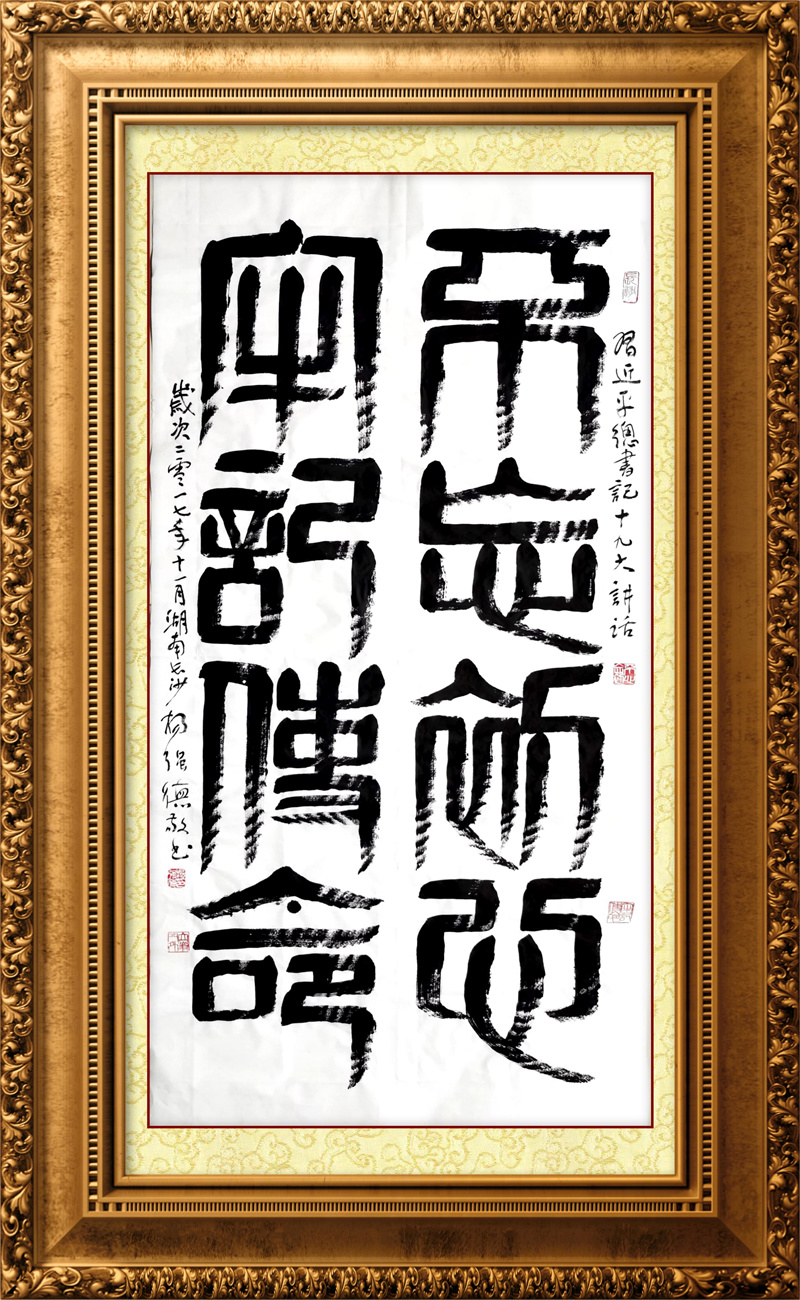 習近平總書記十九大講話
不忘初心
牢記使命
歲次二零一七年十一月湖南長沙楊强德敬书